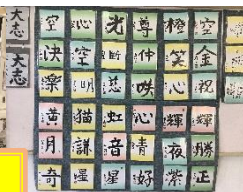 大志
大志
空 心 光 尊 橙 空
決 空 断 仲 笑 金
楽 明 慈 咲 心 祝
黄 猫 虹 心 輝 輝
月 謙 音 晴 夜 勝
奇 星 星 好 紫 正